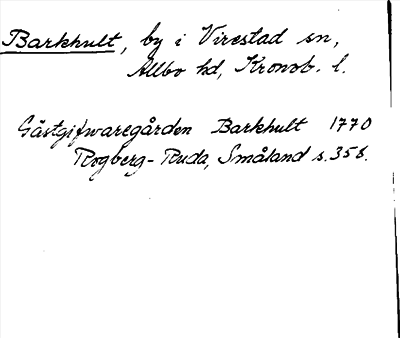 Barkhult, by i Virestad sn,
Allbo hd, Kronob. l.
Gästgifwaregården Barkhult 1770
Rogberg-Ruda, Småland s. 358.